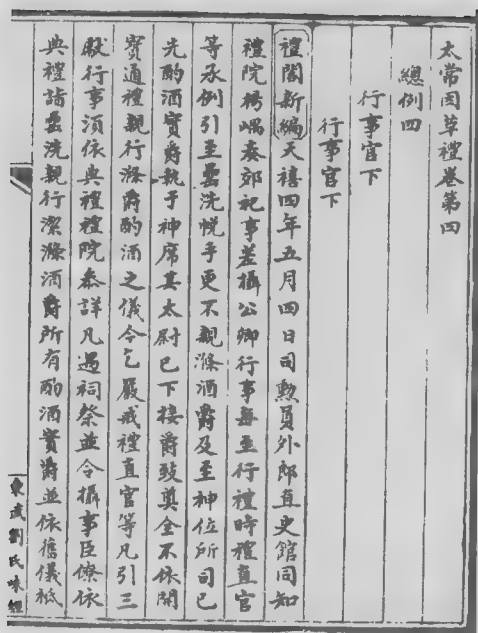 太常因革禮卷第四
總例四
行事官下
行事官下
禮閣新編天禧四年五月四日司勲員外郎直史館同知
禮院楊嵎奏郊祀事差攝公卿行事每至行禮時禮直官
等承例引至罍洗帨手更不親滌酒爵及至神位所司已
先酌酒實爵執于神席其太尉已下接爵跪奠全不依開
寳通禮親行滌爵酌酒之儀今乞嚴戒禮直官等凡引三
獻行事須依典禮禮院叅詳凡遇祠祭並令攝事臣僚依
典禮詣罍洗親行潔滌酒爵所有酌酒實爵並依舊儀祗
東武劉氏味經